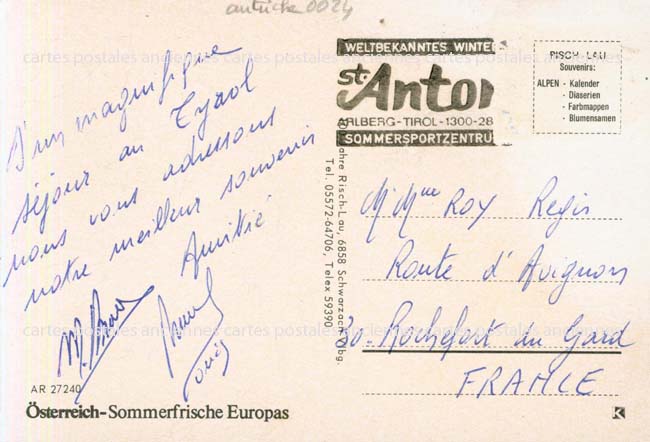 autriche 0024
D'un magnifique
séjour au Tyrol
nous vous adressons
notre meilleur souvenir
Amitié
AR 27240
Österreich-Sommerfrische Europas
WELTBEKANNTES WINTE
St. Anto
ARLBERG-TIROL-1300-28
SOMMERSPORTZENTRU
RISCH-LAU
Souvenirs:
ALPEN - Kalender
- Diaserien
- Farbmappen
- Blumensamen
Jahre Risch-Lau, 6858 Schwarzach Vbg.
Tel. 05572-64706, Telex 59390
M Mme ROY Regis
Route d'Avignon
30-Rochefort du Gard
FRANCE
K
cartes postales anciennes cartes postales anciennes cartes postales anciennes
cartes postales anciennes cartes postales anciennes cartes postales anciennes